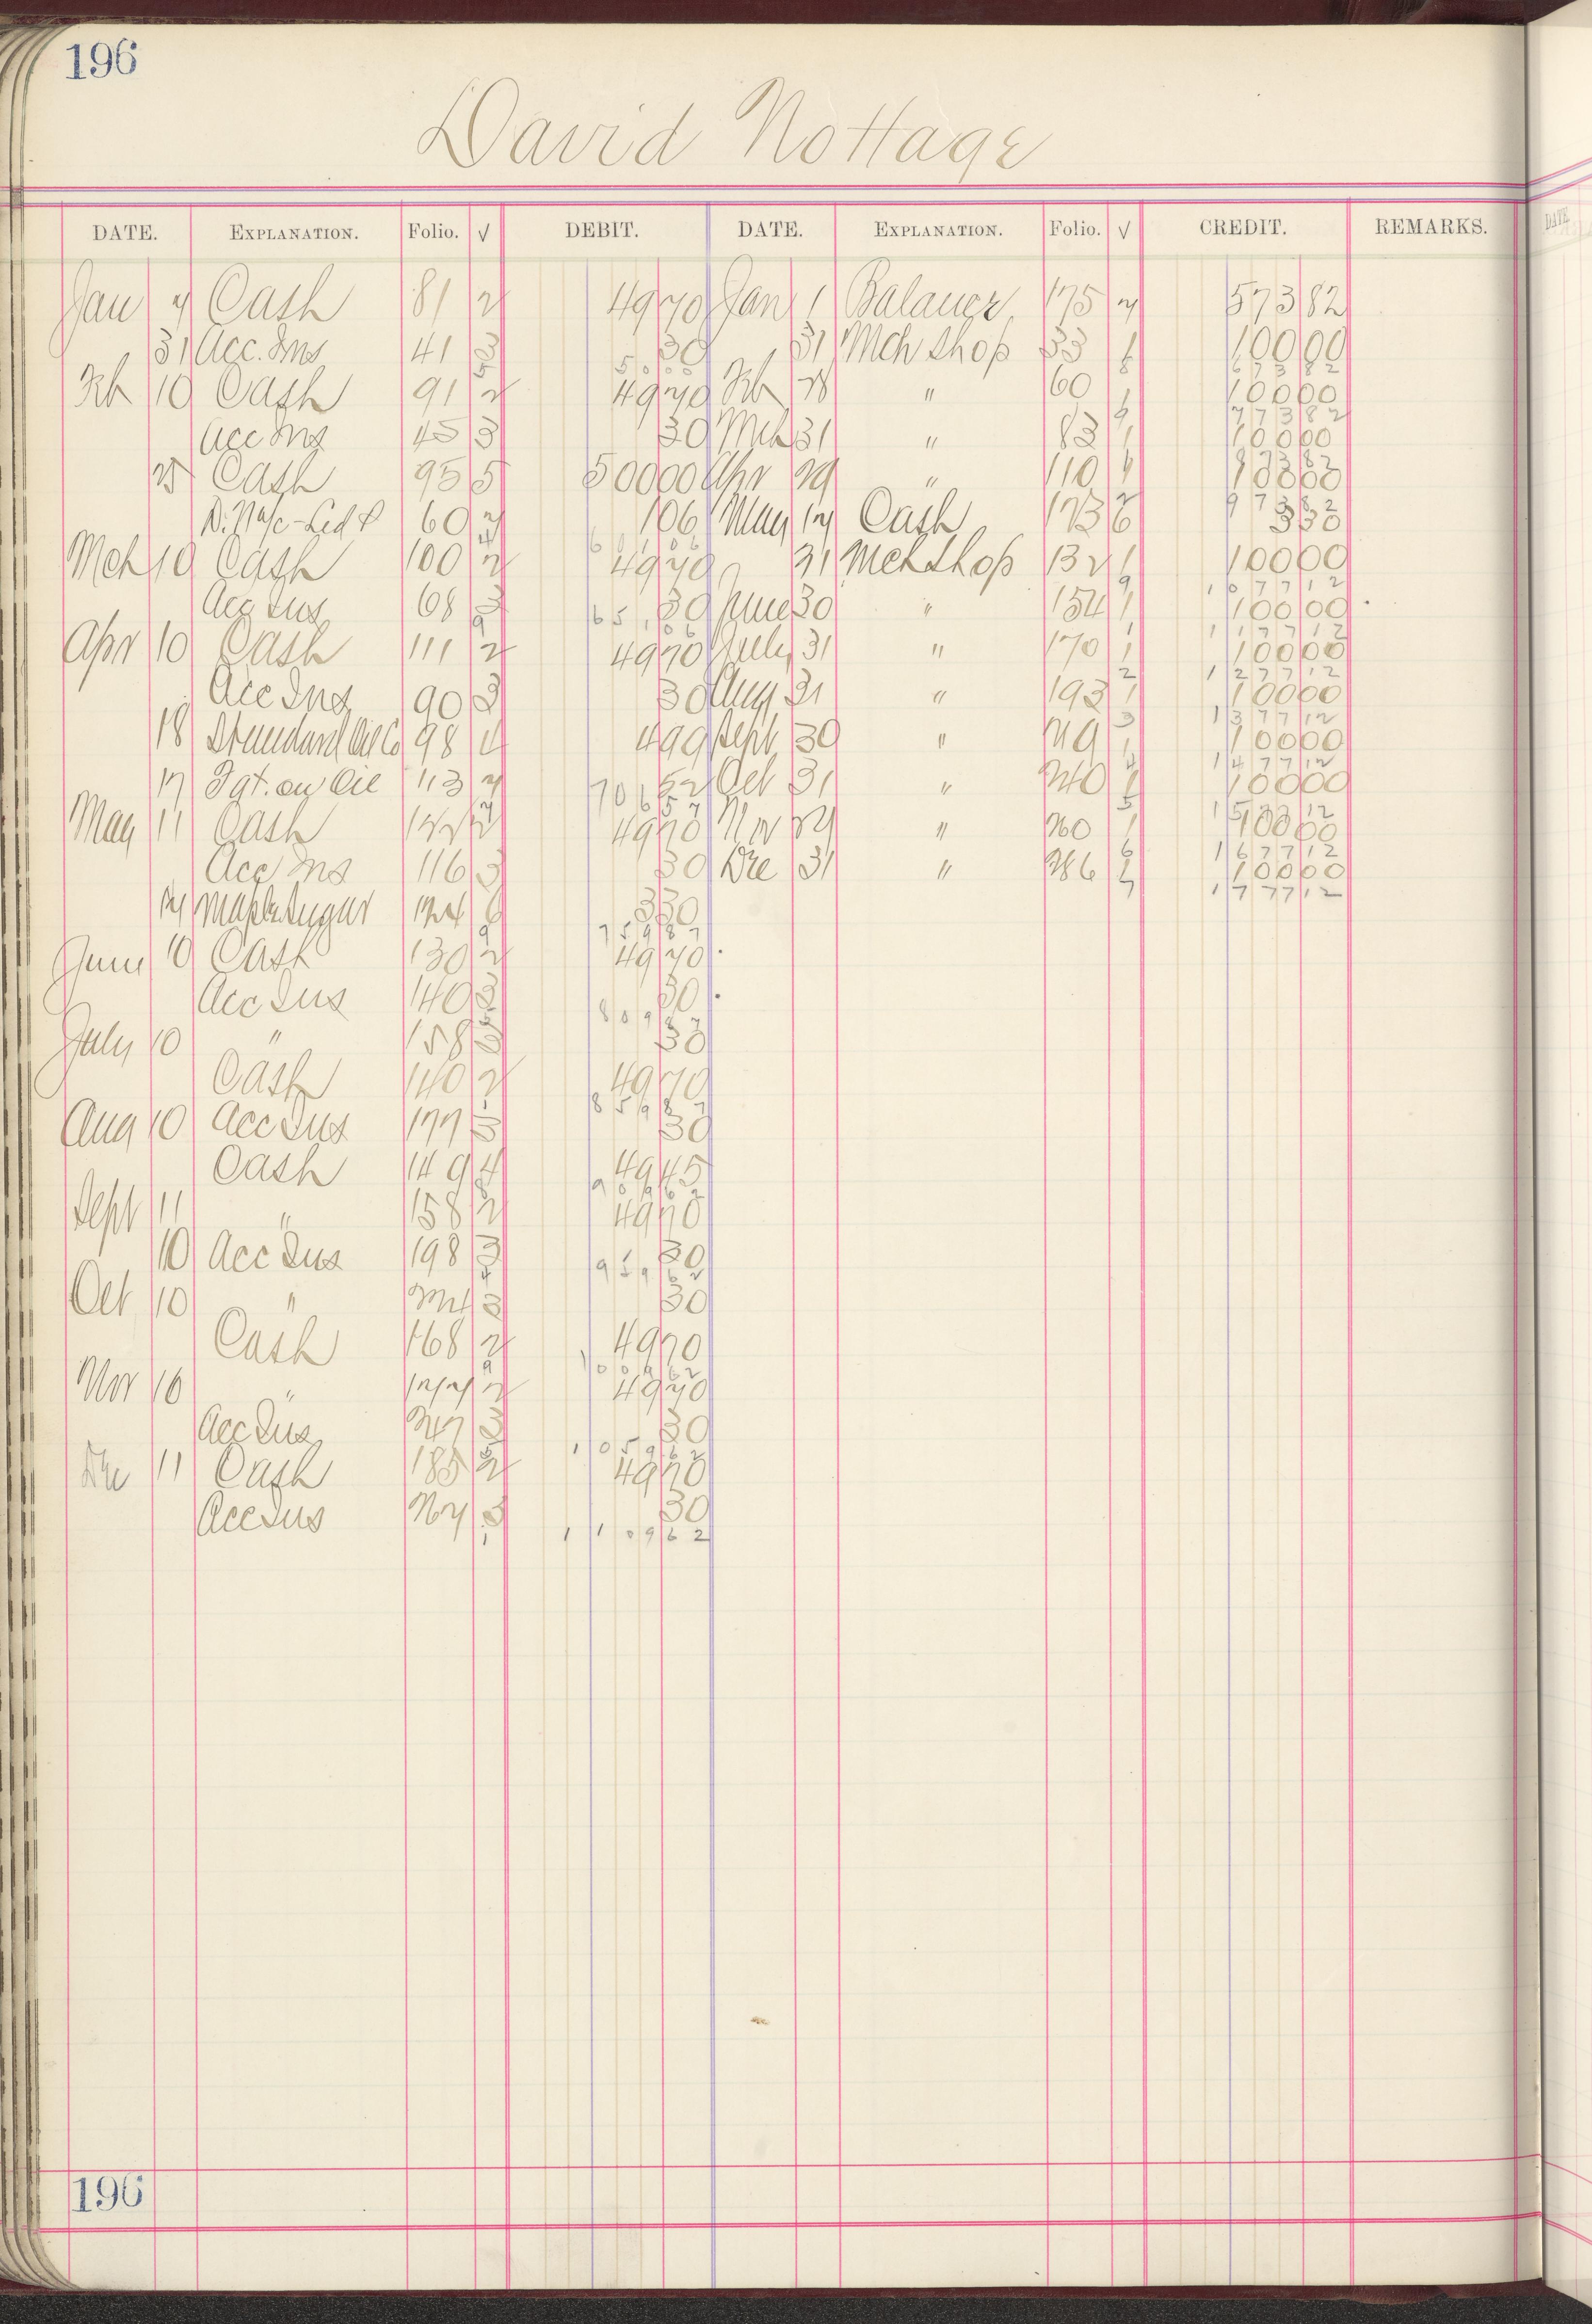 196
David Nottage
DATE. EXPLANATION. Folio. √ DEBIT. DATE. EXPLANATION. Folio. √ CREDIT. REMARKS.
Jan Cash 81 2 49 70 Jan 1 Balance 175 573 82
31 Acc. Ins 41 3 30 31 Mch Shop 33 1 100 00
50 00 673 82
Feb 10 Cash 91 2 49 70 Feb 28 " 60 1 100 00
773 82
Acc Ins 45 3 30 Mch 31 " 83 1 100 00
873 82
Cash 95 5 500 00 Apr 29 " 110 1 100 00
973 82
60 1 06 May Cash 6 3 30
601 06
Mch 10 Cash 100 2 49 70 31 Mch Shop 132 1 100 00
1077 12
Acc Ins 68 3 30 June 30 " 154 1 100 00
651 06 1177 12
Apr 10 Cash 111 2 49 70 July 31 " 170 1 100 00
1277 12
Acc Ins 90 3 30 Aug 31 " 193 1 100 00
1377 12
18 Standard Oil Co 98 4 99 Sept 30 " 1 100 00
1477 12
Fgt. on Oil 113 52 Oct 31 " 240 1 100 00
706 57 1577 12
May 11 Cash 122 2 49 70 Nov " 260 1 100 00
1677 12
Acc Ins 116 3 30 Dec 31 " 286 1 100 00
1777 12
Maple Sugar 124 6 3 30
759 87
June 10 Cash 130 2 49 70
Acc Ins 140 3 30
809 87
July 10 " 158 3 30
Cash 140 2 49 70
859 87
Aug 10 Acc Ins 177 3 30
Cash 149 4 49 45
909 62
Sept 11 " 158 2 49 70
10 Acc Ins 198 3 30
959 62
Oct 10 " 3 30
Cash 168 2 49 70
1009 62
Nov 10 " 2 49 70
Acc Ins 247 3 30
1059 62
Dec 11 Cash 185 2 49 70
Acc Ins 3 30
1109 62
196